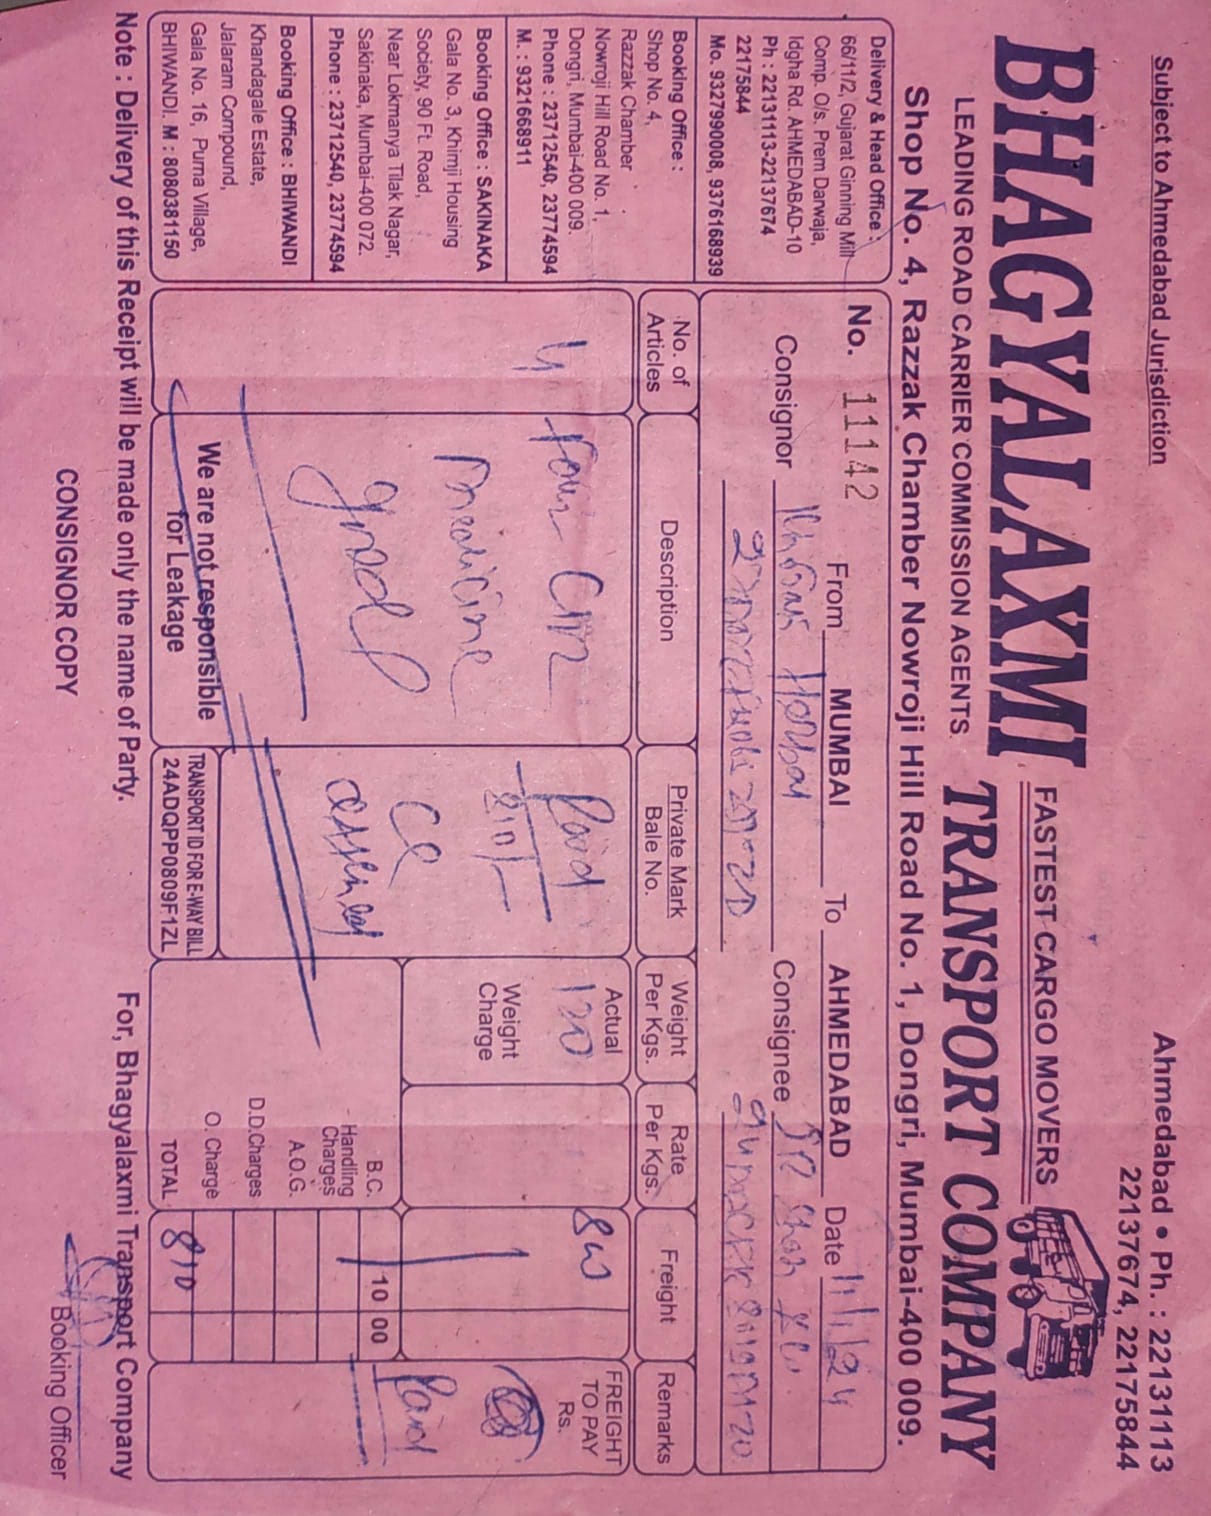 Subject to Ahmedabad Jurisdiction
Ahmedabad • Ph. : 22131113
22137674, 22175844
BHAGYALAXMI
FASTEST CARGO MOVERS
LEADING ROAD CARRIER COMMISSION AGENTS
TRANSPORT COMPANY
Shop No. 4, Razzak Chamber Nowroji Hill Road No. 1, Dongri, Mumbai-400 009.
Delivery & Head Office :
66/11/2, Gujarat Ginning Mill
Comp. O/s. Prem Darwaja,
Idgha Rd. AHMEDABAD-10
Ph : 22131113-22137674
22175844
Mo. 9327990008, 9376168939
Booking Office :
Shop No. 4,
Razzak Chamber
Nowroji Hill Road No. 1,
Dongri, Mumbai-400 009.
Phone : 23712540, 23774594
M. : 9321668911
Booking Office : SAKINAKA
Gala No. 3, Khimji Housing
Society, 90 Ft. Road,
Near Lokmanya Tilak Nagar,
Sakinaka, Mumbai-400 072.
Phone : 23712540, 23774594
Booking Office : BHIWANDI
Khandagale Estate,
Jalaram Compound,
Gala No. 16, Purna Village,
BHIWANDI. M : 8080381150
No. 11142 From MUMBAI To AHMEDABAD Date 11/1/24
Consignor Herbal Consignee
No. of Articles
Description
Private Mark Bale No.
Weight Per Kgs.
Rate Per Kgs.
Freight
Remarks
4
Four
medicine
good
We are not responsible
for Leakage
Paid
810/-
TRANSPORT ID FOR E-WAY BILL
24ADQPP0809F1ZL
Actual
120
Weight
Charge
800
B.C. 10 00
Handling Charges
A.O.G.
D.D.Charges
O. Charge
TOTAL 810
FREIGHT
TO PAY
Rs.
Paid
Note : Delivery of this Receipt will be made only the name of Party.
For, Bhagyalaxmi Transport Company
CONSIGNOR COPY
Booking Officer